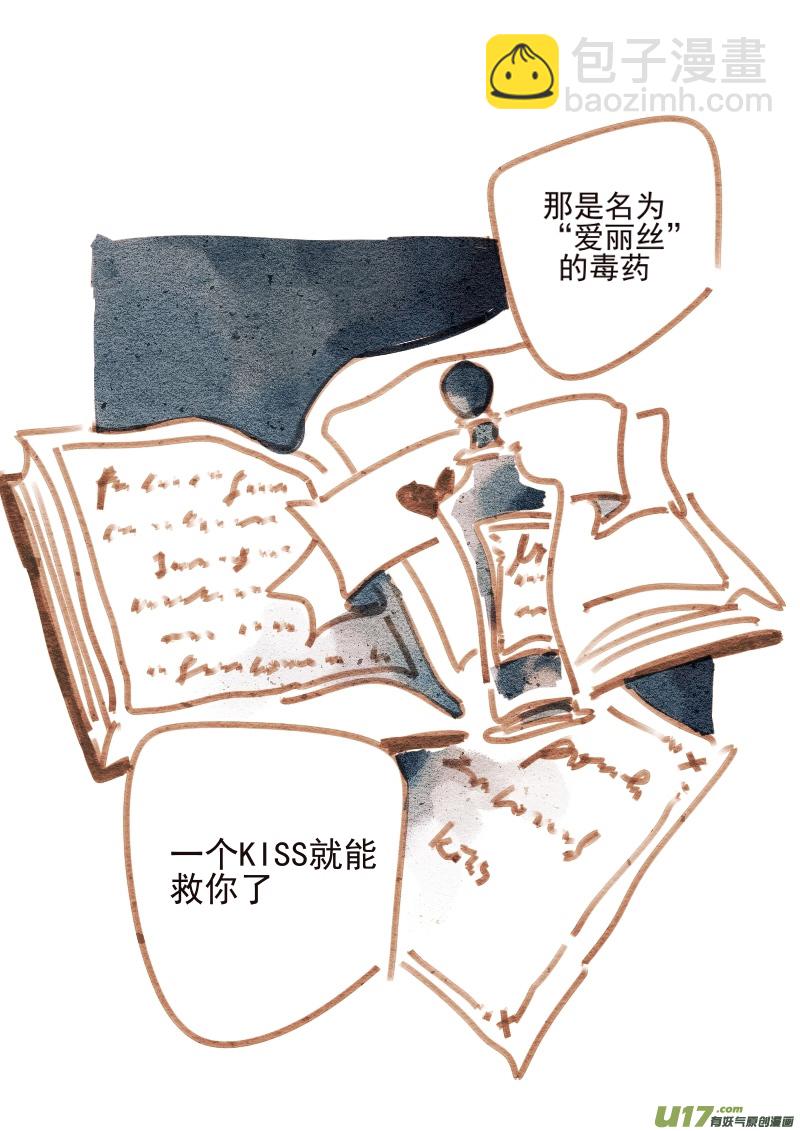 包子漫畫
baozimh.com
那是名为
“爱丽丝”
的毒药
一个KISS就能
救你了
kiss
U17.com
有妖气原创漫画